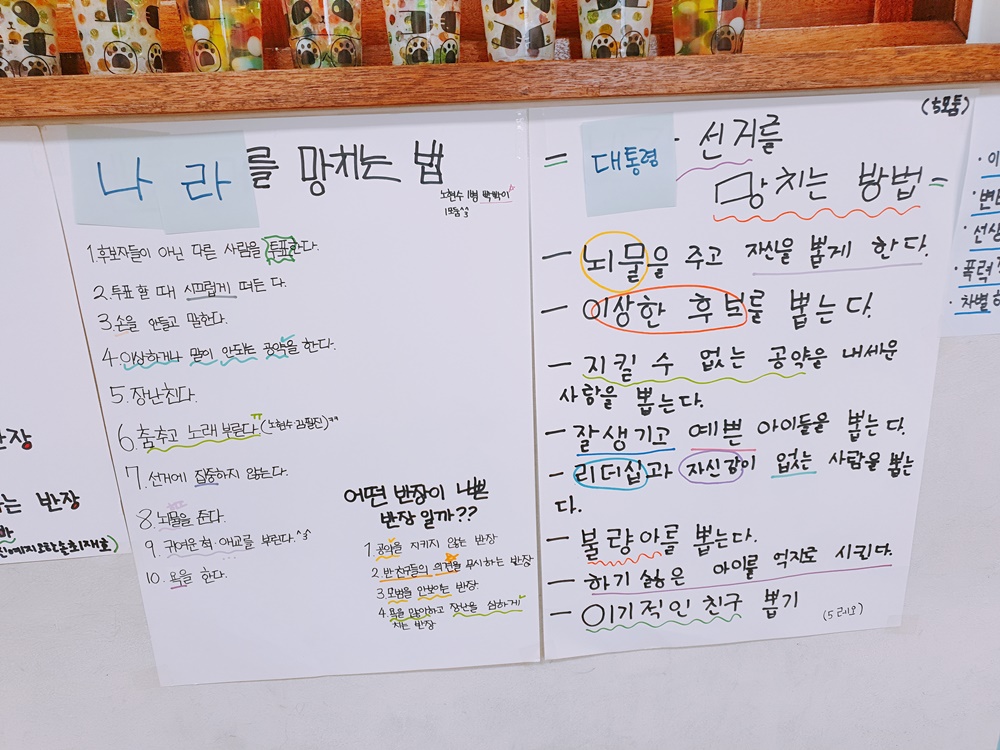 나라를 망치는 법
1. 후보자들이 아닌 다른 사람을 투표한다.
2. 투표 할 때 시끄럽게 떠든 다.
3. 손을 안들고 말한다.
4. 이상하거나 말이 안되는 공약을 한다.
5. 장난친다.
6. 춤추고 노래 부른다
7. 선거에 집중하지 않는다.
8. 뇌물을 준다.
9. 귀여운 척·애교를 부린다.^3^
10. 욕을 한다.
어떤 반장이 나쁜
반장 일까??
1. 공약을 지키지 않는 반장
2. 반 친구들의 의견을 무시하는 반장
3. 모범을 안보이는 반장.
4. 욕을 많이하고 장난을 심하게
치는 반장
(5모둠)
= 대통령 선거를
망치는 방법 =
- 뇌물을 주고 자신을 뽑게 한다.
- 이상한 후보를 뽑는다.
- 지킬 수 없는 공약을 내세운
사람을 뽑는다.
- 잘생기고 예쁜 아이들을 뽑는다.
- 리더십과 자신감이 없는 사람을 뽑는
다.
- 불량아를 뽑는다.
- 하기 싫은 아이를 억지로 시킨다.
- 이기적인 친구 뽑기
반장
는 반장
· 선생
· 폭력
· 차별